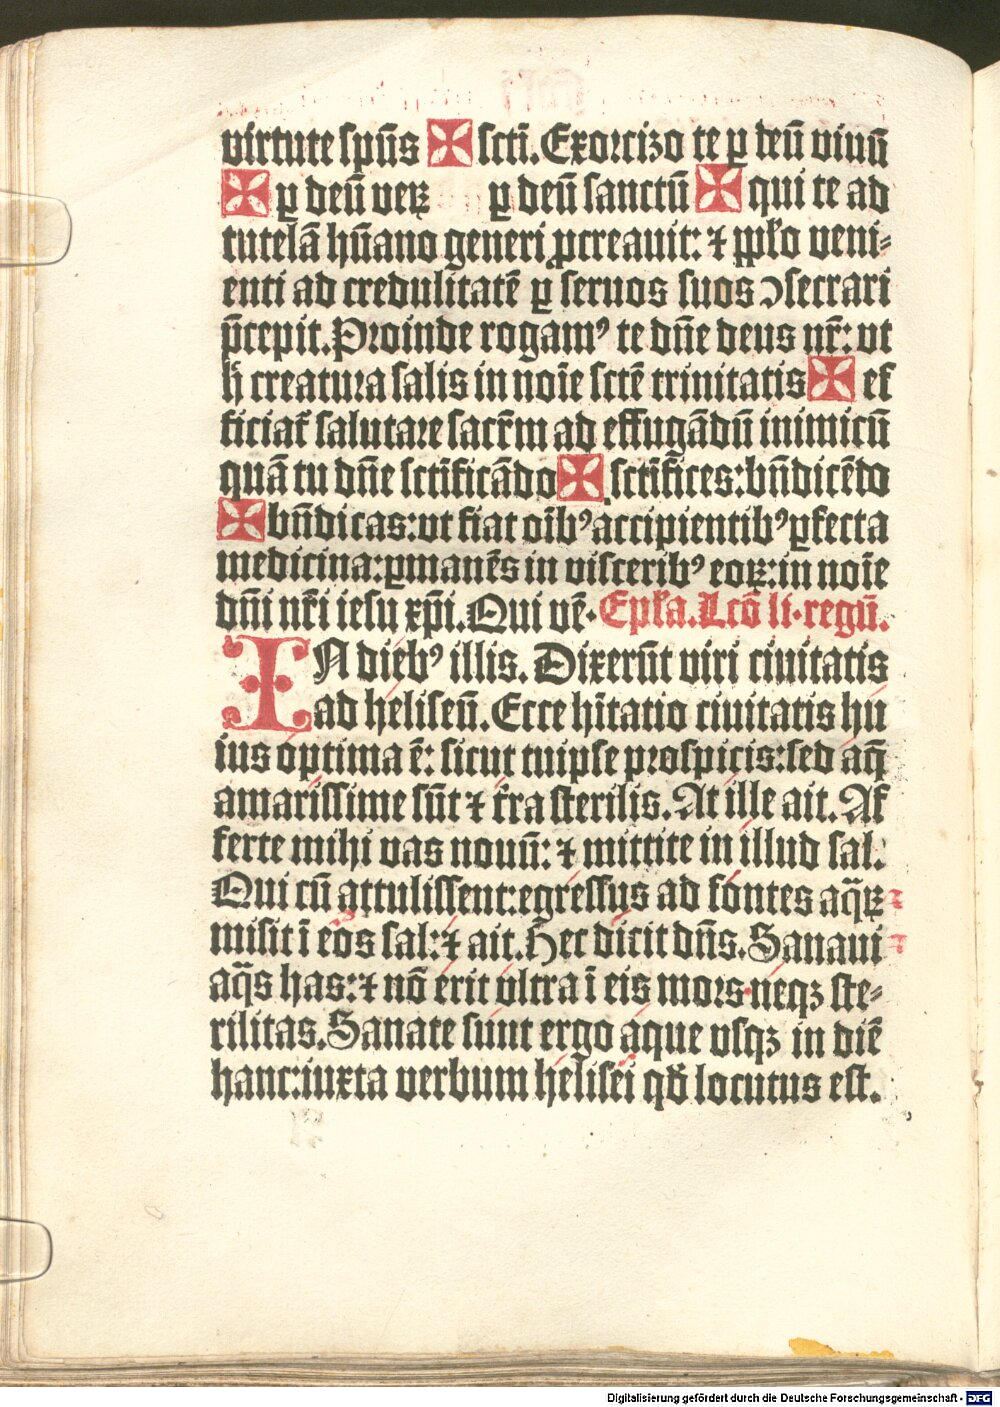 virtute spūs ✠ scti̅. Exorcizo te ꝑ deū viuū
✠ ꝑ deū veꝝ ꝑ deū sanctū ✠ qui te ad
tutelā hūano generi ꝓcreauit: ⁊ pp̄lo veni⸗
enti ad credulitatē ꝑ seruos suos ↄsecrari
p̄cepit. Proinde rogamꝰ te dn̄e deus nr̄: vt
h̄ creatura salis in noīe sctē trinitatis ✠ ef
ficiat̄ salutare sacr̄m ad effugādū inimicū
quā tu dn̄e sctificādo ✠ sctifīces: bn̄dicēdo
✠ bn̄dicas: vt fiat oībꝰ accipientibꝰ ꝑfecta
medicina: ꝑmanēs in visceribꝰ eoꝝ: in noīe
dn̄i nr̄i iesu xp̄i. Qui vē. Epl̄a. Lcō li. regū.
IN diebꝰ illis. Dixerūt viri ciuitatis
ad heliseū. Ecce hi̅tatio ciuitatis hu
ius optima ē: sicut tuipse prospicis: sed aq̄
amarissime sūt ⁊ t̄ra sterilis. At ille ait. Af
ferte mihi vas nouū: ⁊ mittite in illud sal.
Qui cū attulissent: egressus ad fontes aq̄ꝝ
misit ī eos sal: ⁊ ait. Hec dicit dn̄s. Sanaui
aq̄s has: ⁊ nō erit vltra ī eis mors neqꝫ ste⸗
rilitas. Sanate sunt ergo aque vsqꝫ in diē
hanc: iuxta verbum helisei qd̄ locutus est.
Digitalisierung gefördert durch die Deutsche Forschungsgemeinschaft - DFG